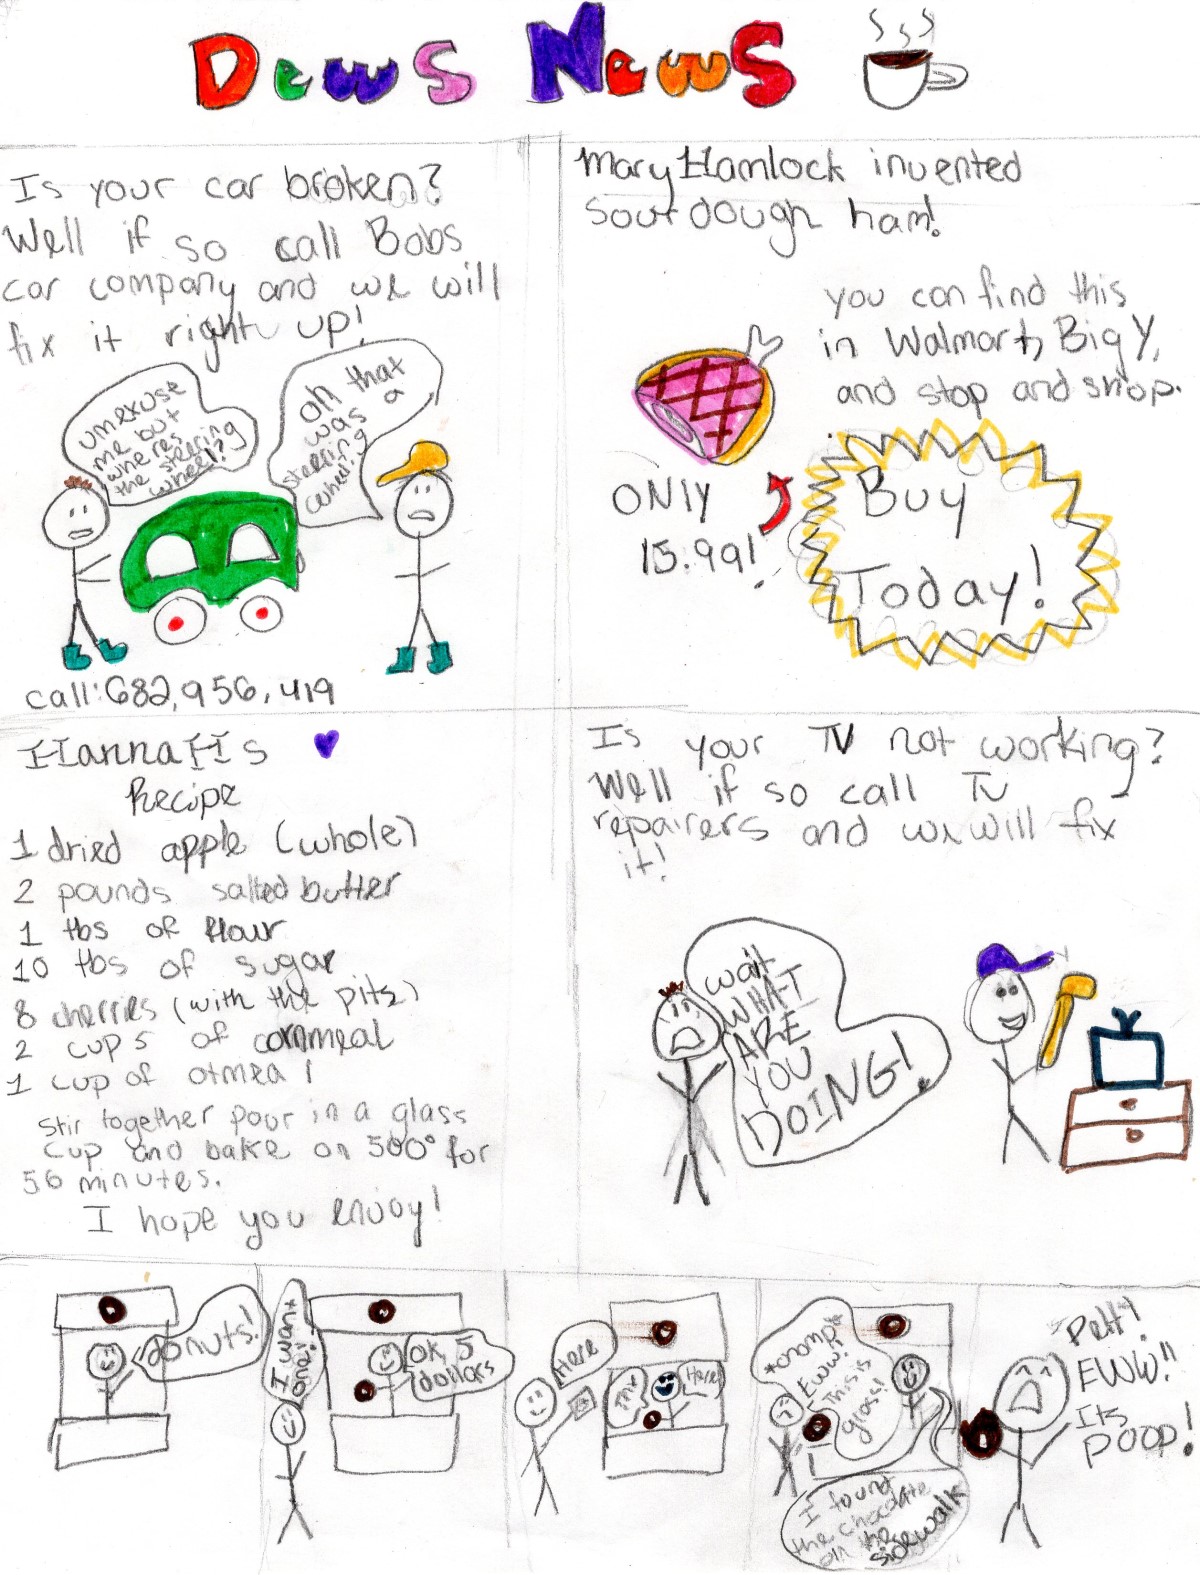 Dews News
Is your car broken?
Well if so call Bobs
car company and we will
fix it right up!
um exuse
me but
wheres
the steering
wheel?
oh that
was a
steering
wheel?
call: 682,956,419
Mary Hamlock invented
sourdough ham!
you can find this
in Walmart, Big Y,
and stop and shop.
ONLY
15.99!
Buy
Today!
HannaHs
Recipe
1 dried apple (whole)
2 pounds salted butter
1 tbs of flour
10 tbs of sugar
8 cherries (with the pits)
2 cups of cornmeal
1 cup of otmeal
stir together pour in a glass
cup and bake on 500° for
56 minutes.
I hope you enjoy!
Is your TV not working?
Well if so call Tv
repairers and we will fix
it!
wait
WHAT
ARE
YOU
DOING!
donuts!
I want
one!
OK, 5
dollars
Here
Thx
Here
*chomp*
Eww!
This is
gross!
I found
the chocolate
on the
sidewalk
EWW!!
Its
POOP!